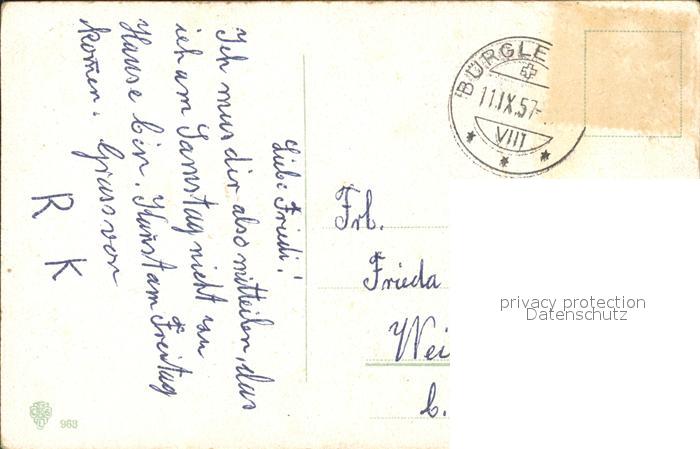 Liebe Friedi!
Ich mus dir also mitteilen, das
ich am Samstag nicht zu
Hause bin. Kanst am Freitag
komen. Gruss von
R K
BÜRGLE
11.IX.57-
VIII
Frl.
Frieda
Wei
b.
privacy protection
Datenschutz
963